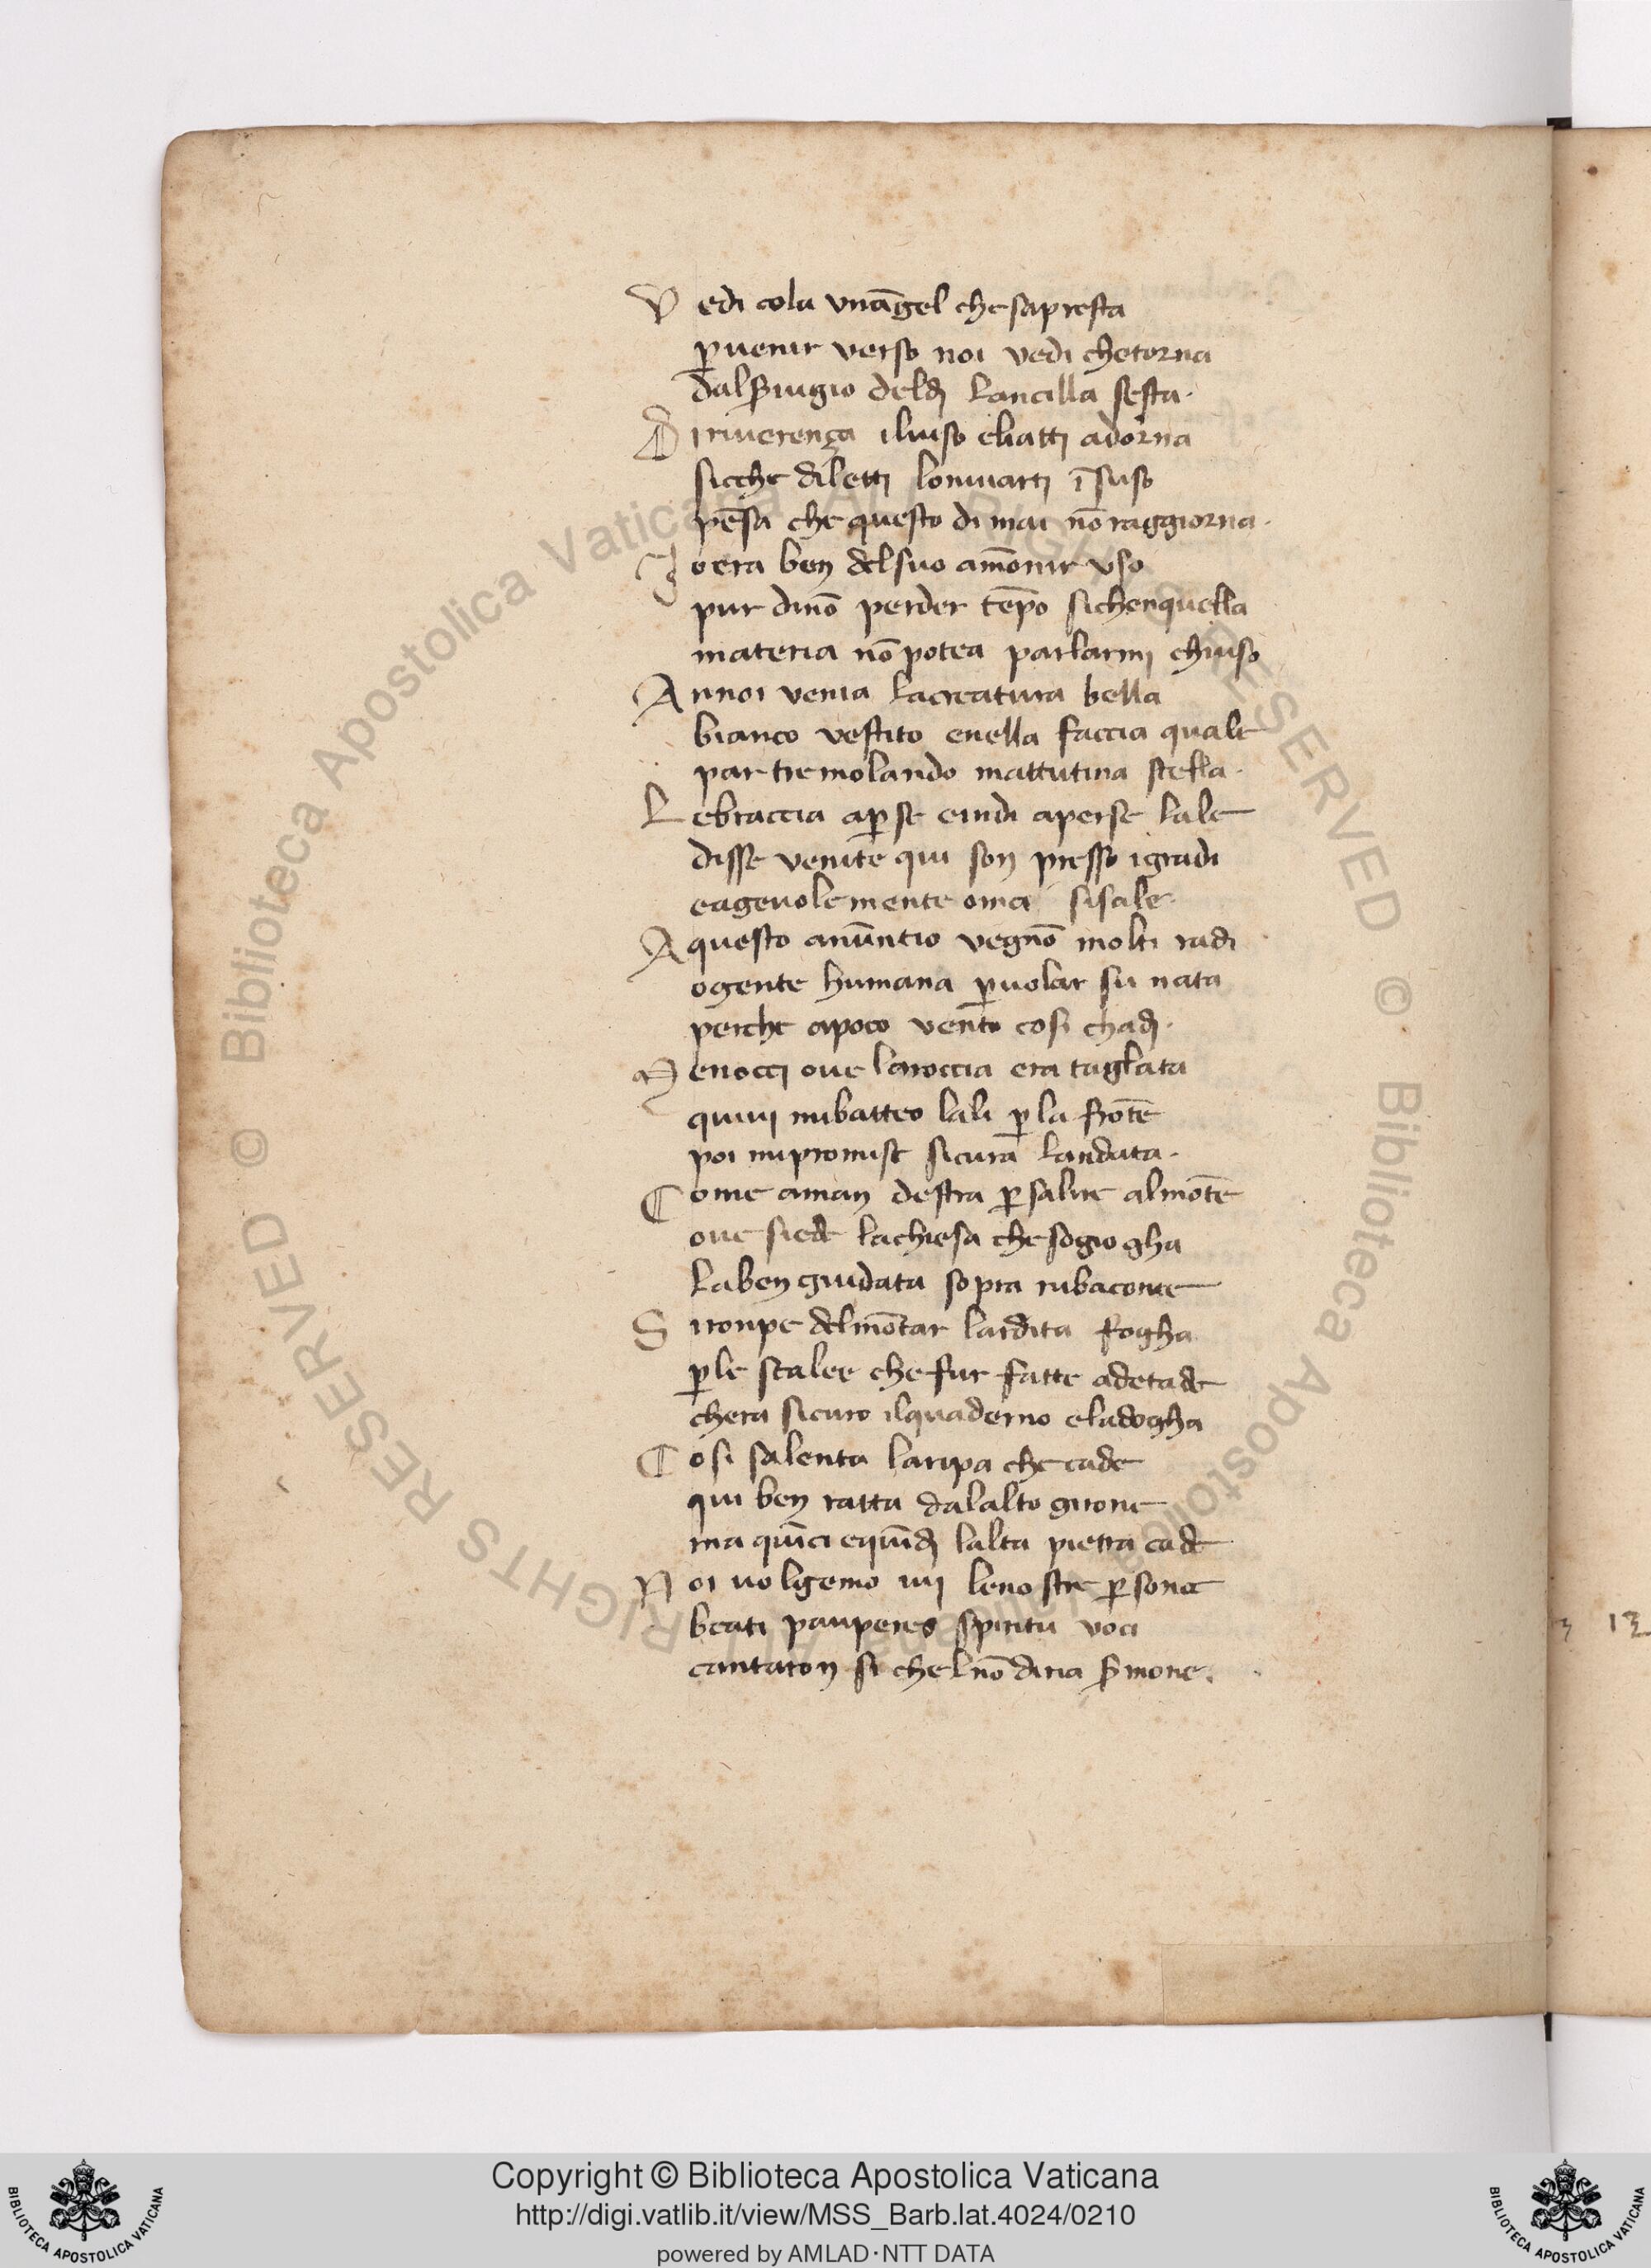 Vedi cola vnāgel chesapresta
ꝑuenir verso noi vedi chetorna
dalẜuigio deldı lancilla sesta.
Diriuerença iluiso eliatti adorna
sicche diletti lonuiarti ī suso
pēsa che questo di mai nō raggiorna.
Io era ben delsuo amōnir vso
pur dinō perder tēpo sichenquella
materia nō potea parlarmi chiuso
Annoi venia lacreatura bella
bianco vestito enella faccia quale
par tremolando mattutina stella.
Lebraccia aꝑse eindi aperse lale
disse venite qui son presso igradi
eageuolemente omai sisale.
Aquesto anūntio vegnō molti radi
ogente humana ꝑuolar su nata
perche apoco vento cosi chadi.
Menocci oue laroccia era taglata
quiui mibatteo lali ꝑ la frōte
poi mipromise sicura landata.
Come aman destra ꝑ salire almōte
oue siede lachiesa che sogiogha
laben guidata sopra rubaconte
Sironpe delmōtar lardita fogha
ꝑle scalee che fur fatte adetade
chera sicuro ilquaderno eladogha
Cosi salenta laripa che cade
qui ben ratta dalalto girone
ma quīci equīdi lalta pietra rade
Noi uolgemo iui lenostre ꝑsone
beati pauperes spiritu voci
cantaron si chel nō diria ẜmone.
BIBLIOTECA APOSTOLICA VATICANA
Copyright © Biblioteca Apostolica Vaticana
http://digi.vatlib.it/view/MSS_Barb.lat.4024/0210
powered by AMLAD·NTT DATA
BIBLIOTECA APOSTOLICA VATICANA
© Biblioteca Apostolica Vaticana ALL RIGHTS RESERVED © Biblioteca Apostolica Vaticana ALL RIGHTS RESERVED